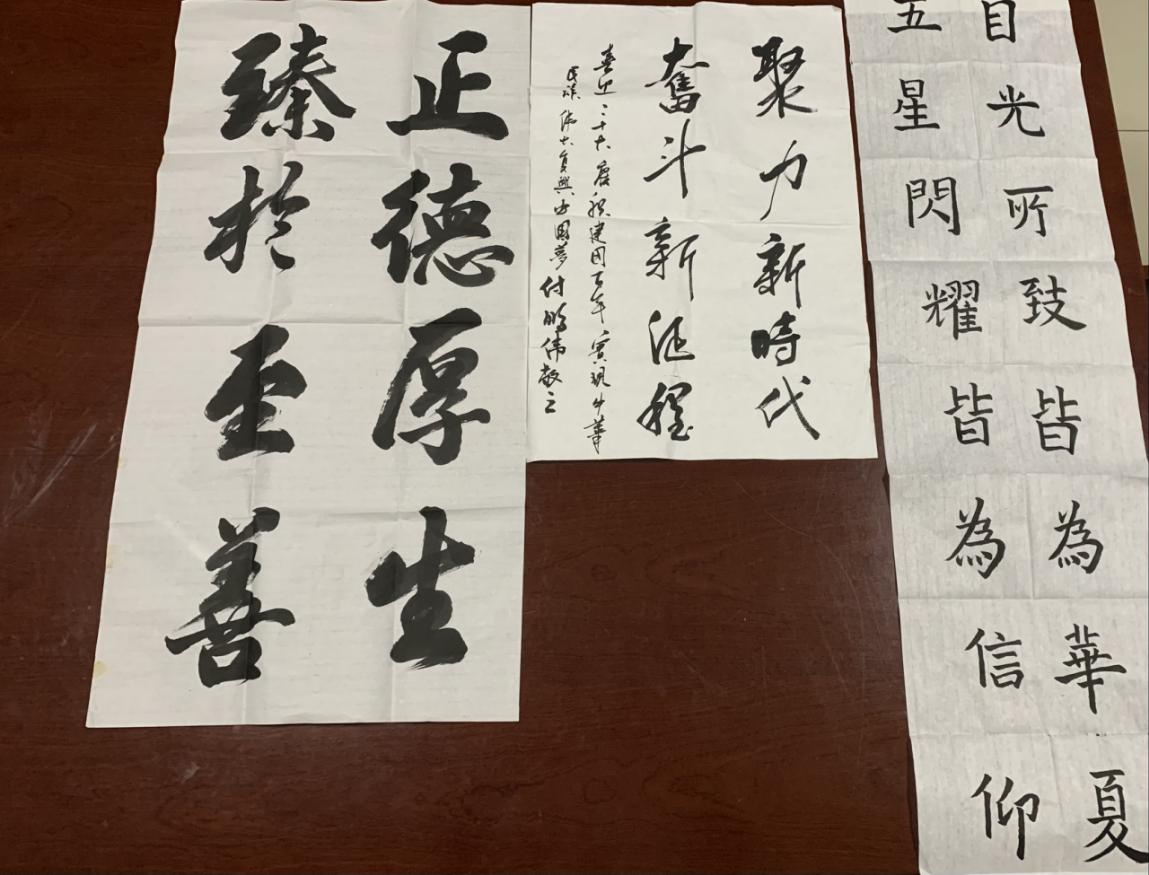 正德厚生
臻於至善
聚力新時代
奮斗新征程
喜迎二十大慶祝建国百年實現中華
民族偉大復興中国夢付鹏伟敬
目光所致皆為華夏
五星閃耀皆為信仰